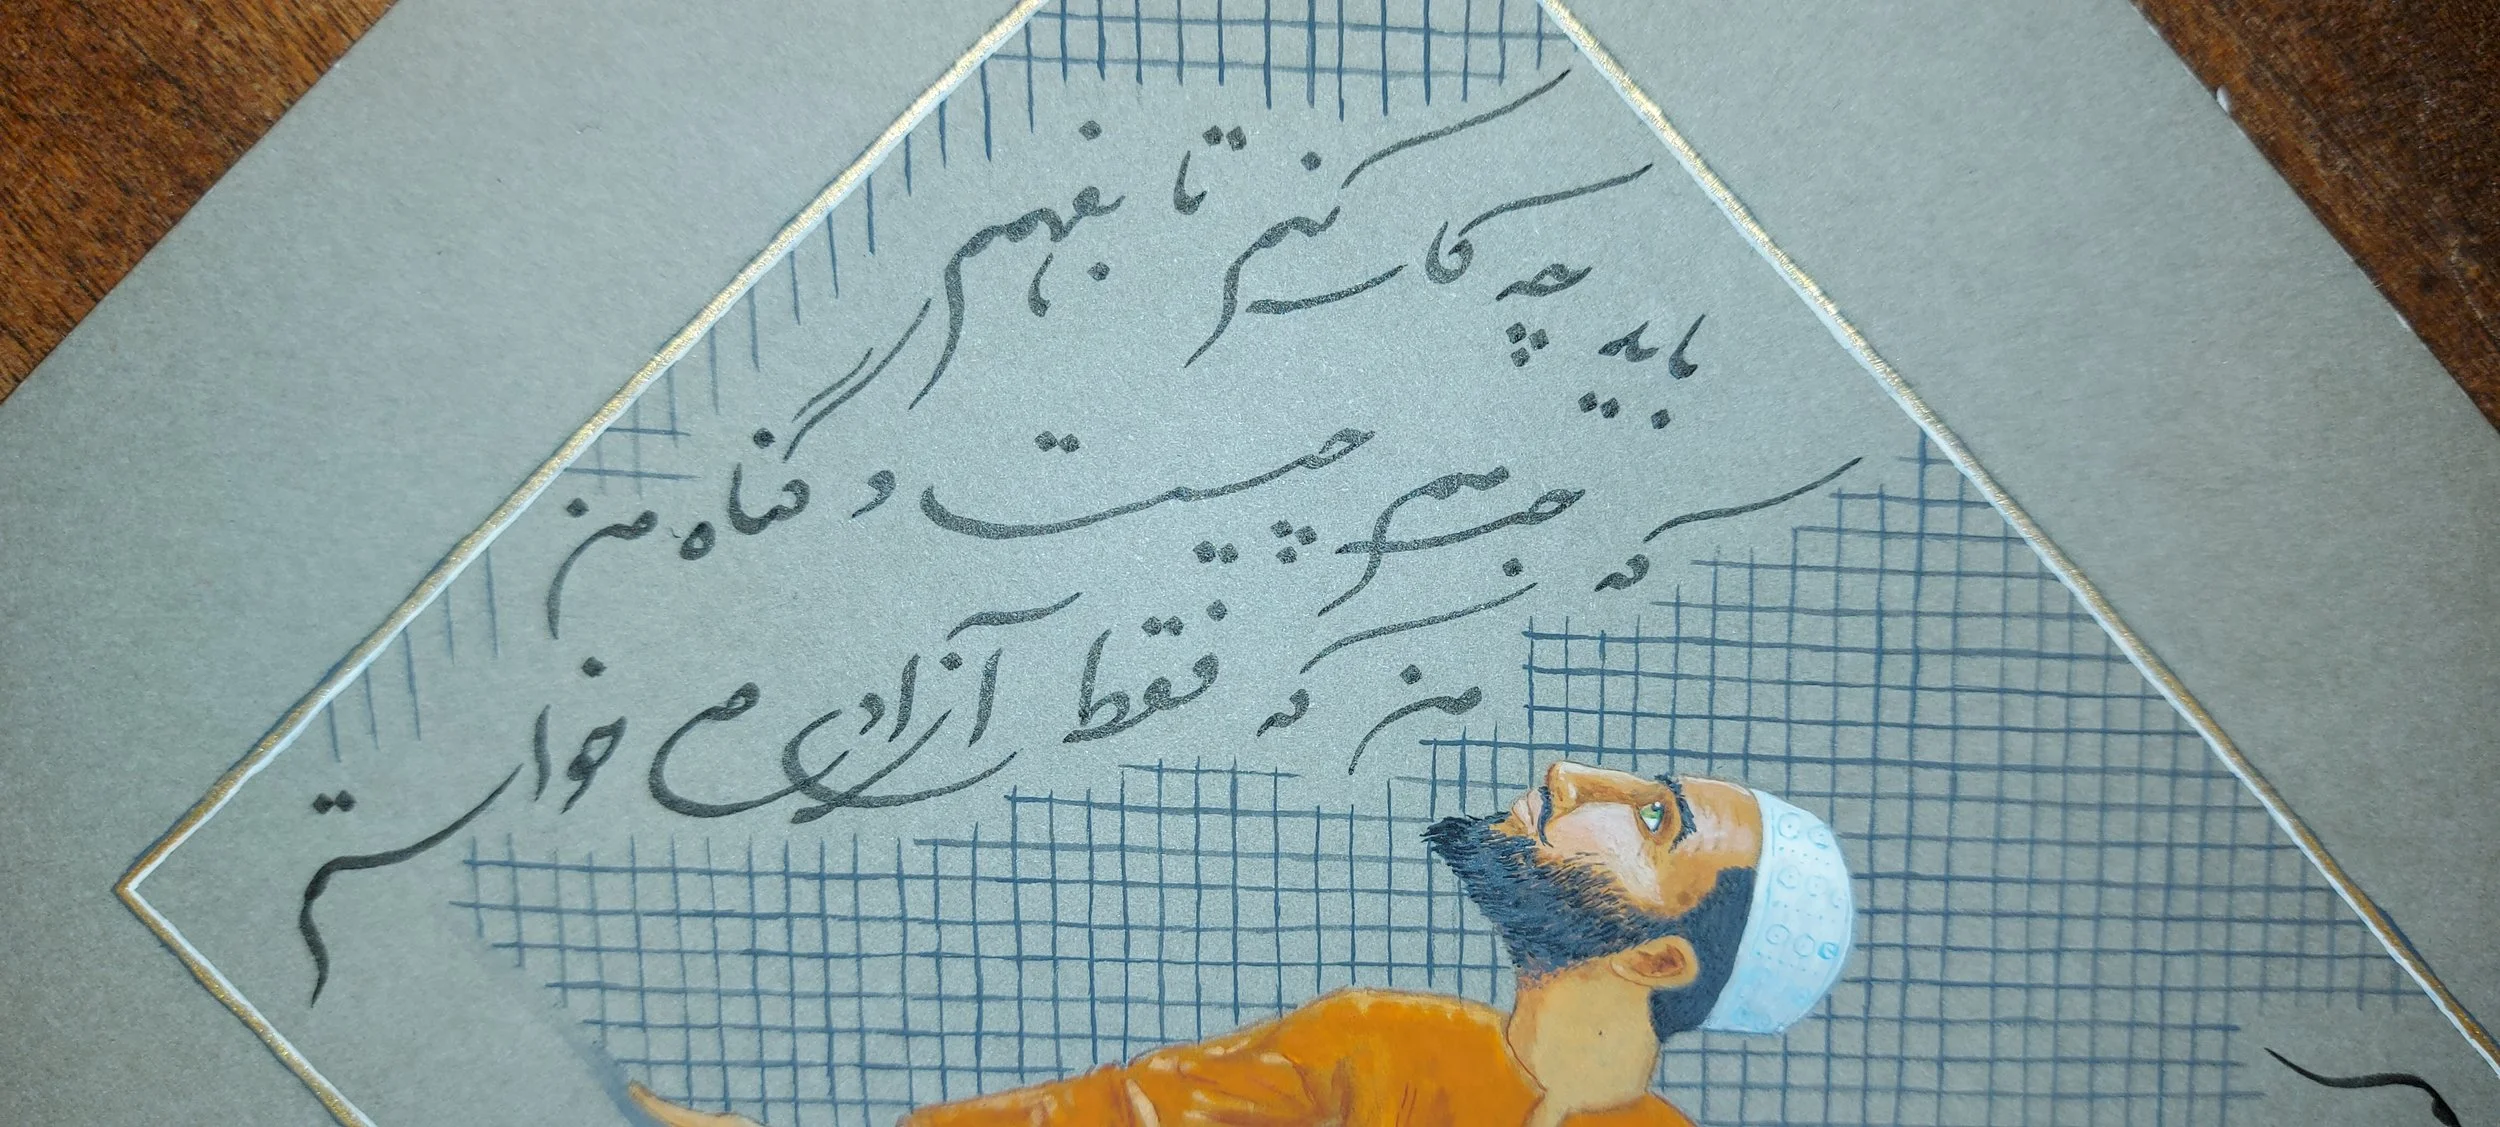 باید چه کار کنم تا بفهمم
که جرمم چیست و گناه من
من که فقط آزادی می خواستم